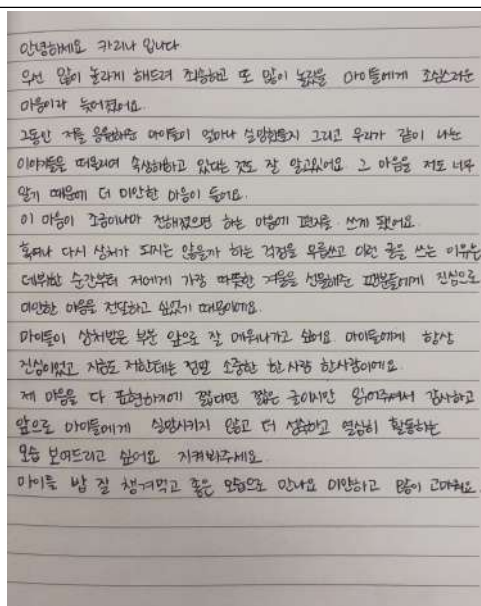 안녕하세요 카리나 입니다
우선 많이 놀라게 해드려 죄송하고 또 많이 놀랐을 마이들에게 조심스러운
마음이라 늦어졌어요.
그동안 저를 응원해준 마이들이 얼마나 실망했을지 그리고 우리가 같이 나눈
이야기들을 떠올리며 속상해하고 있다는 것도 잘 알고있어요 그 마음을 저도 너무
알기 때문에 더 미안한 마음이 들어요.
이 마음이 조금이나마 전해졌으면 하는 마음에 편지를 쓰게 됐어요.
혹여나 다시 상처가 되지는 않을까 하는 걱정을 무릅쓰고 이런 글을 쓰는 이유는
데뷔한 순간부터 저에게 가장 따뜻한 겨울을 선물해준 팬분들에게 진심으로
미안한 마음을 전달하고 싶었기 때문이에요.
마이들이 상처받은 부분 앞으로 잘 메워나가고 싶어요. 마이들에게 항상
진심이었고 지금도 저한테는 정말 소중한 한 사람 한사람이에요.
제 마음을 다 표현하기에 짧다면 짧은 글이지만 읽어주셔서 감사하고
앞으로 마이들에게 실망시키지 않고 더 성숙하고 열심히 활동하는
모습 보여드리고 싶어요 지켜봐주세요.
마이들 밥 잘 챙겨먹고 좋은 모습으로 만나요 미안하고 많이 고마워요.